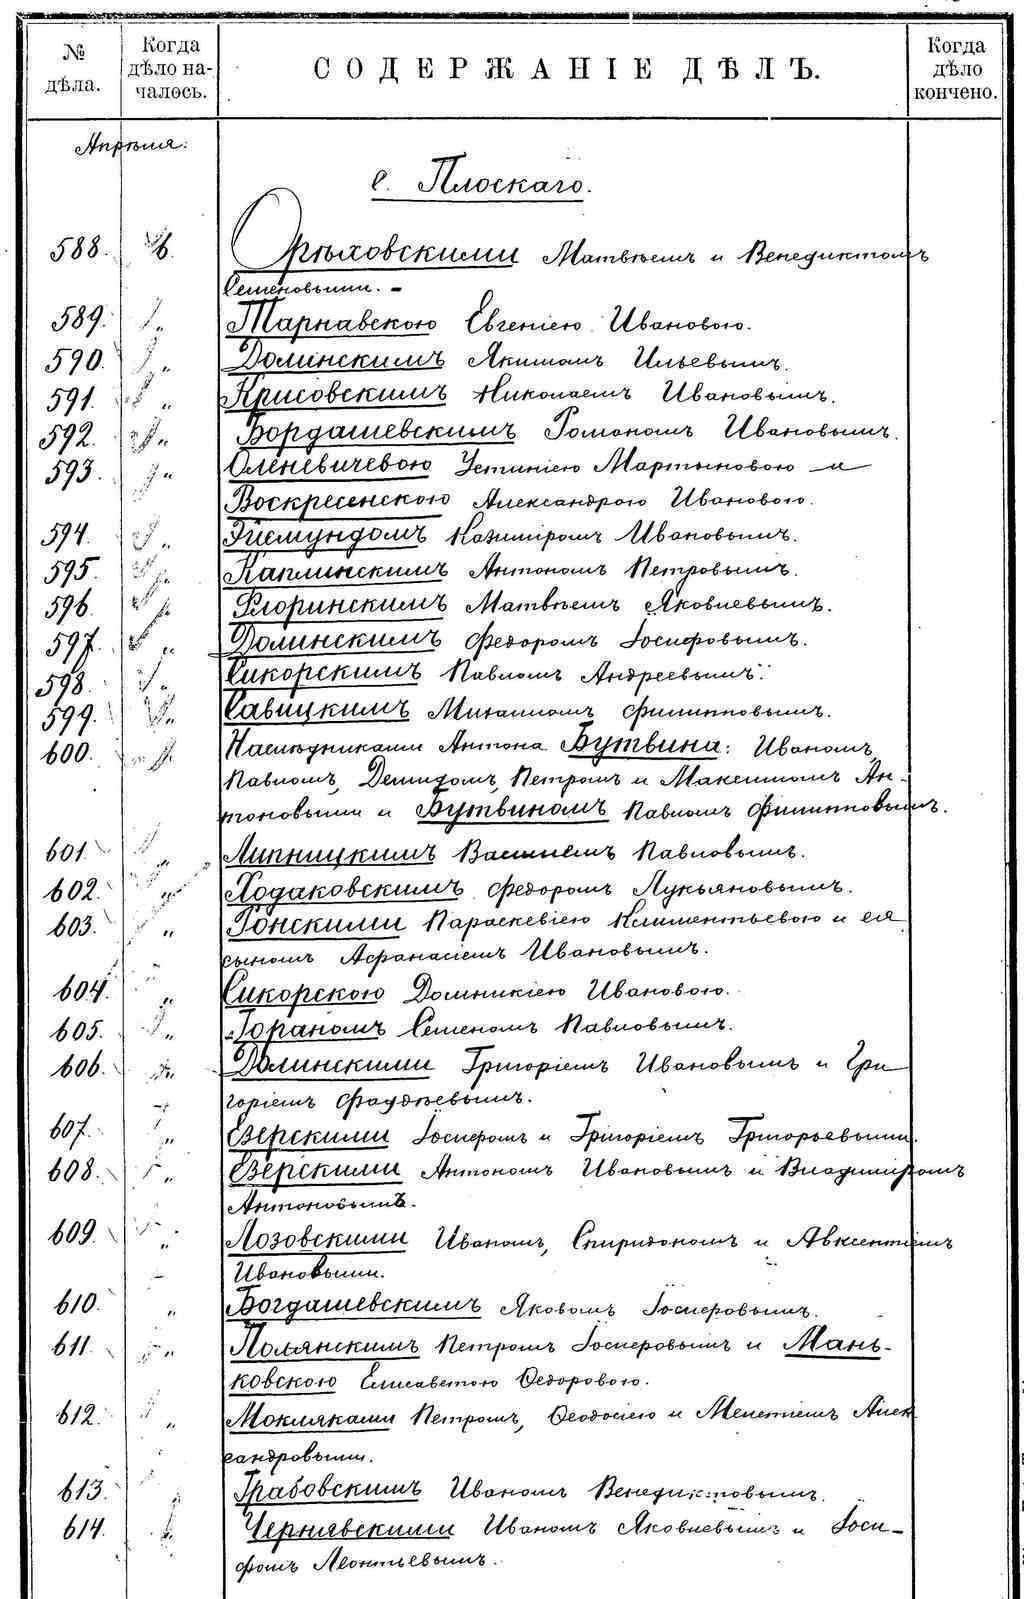 № дѣла.
Когда дѣло на-чалось.
СОДЕРЖАНІЕ ДѢЛЪ.
Когда дѣло кончено.
Апрѣля:
с. Плоскаго.
588. 6. Орѣховскими Матвѣемъ и Венедиктомъ
Семеновыми. –
589. „ Тарнавскою Евгеніею Ивановою.
590. „ Долинскимъ Якимомъ Ильевымъ.
591. „ Крисовскимъ Николаемъ Ивановымъ.
592. „ Бордашевскимъ Романомъ Ивановымъ.
593. „ Оленевичевою Устиніею Мартыновою и
Воскресенскою Александрою Ивановою.
594. „ Эйсмундомъ Казиміромъ Ивановымъ.
595. „ Каплинскимъ Антономъ Петровымъ.
596. „ Флоринскимъ Матвѣемъ Яковлевымъ.
597. „ Долинскимъ Федоромъ Іосифовымъ.
598. „ Сикорскимъ Павломъ Андреевымъ.
599. „ Савицкимъ Михаиломъ Филипповымъ.
600. „ Наслѣдниками Антона Бутвина: Иваномъ,
Павломъ, Демидомъ, Петромъ и Максимомъ Ан-
тоновыми и Бутвиномъ Павломъ Филипповымъ.
601. „ Липницкимъ Василіемъ Павловымъ.
602. „ Ходаковскимъ Федоромъ Лукьяновымъ.
603. „ Гонскими Параскевіею Климентьевою и ея
сыномъ Афанасіемъ Ивановымъ.
604. „ Сикорскою Домникіею Ивановою.
605. „ Гораномъ Семеномъ Павловымъ.
606. „ Долинскими Григоріемъ Ивановымъ и Гри
горіемъ Фаддѣевымъ.
607. „ Езерскими Іосифомъ и Григоріемъ Григорьевыми.
608. „ Езерскими Антономъ Ивановымъ и Владиміромъ
Антоновымъ.
609. „ Лозовскими Иваномъ, Спиридономъ и Авксентіемъ
Ивановыми.
610. „ Богдашевскимъ Яковомъ Іосифовымъ.
611. „ Полянскимъ Петромъ Іосифовымъ и Мань-
ковскою Елисаветою Ѳедоровою.
612. „ Мокляками Петромъ, Ѳеодосіею и Мелетіемъ Алек
сандровыми.
613. „ Грабовскимъ Иваномъ Венедиктовымъ.
614. „ Чернявскими Иваномъ Яковлевымъ и Іоси-
фомъ Леонтьевымъ.